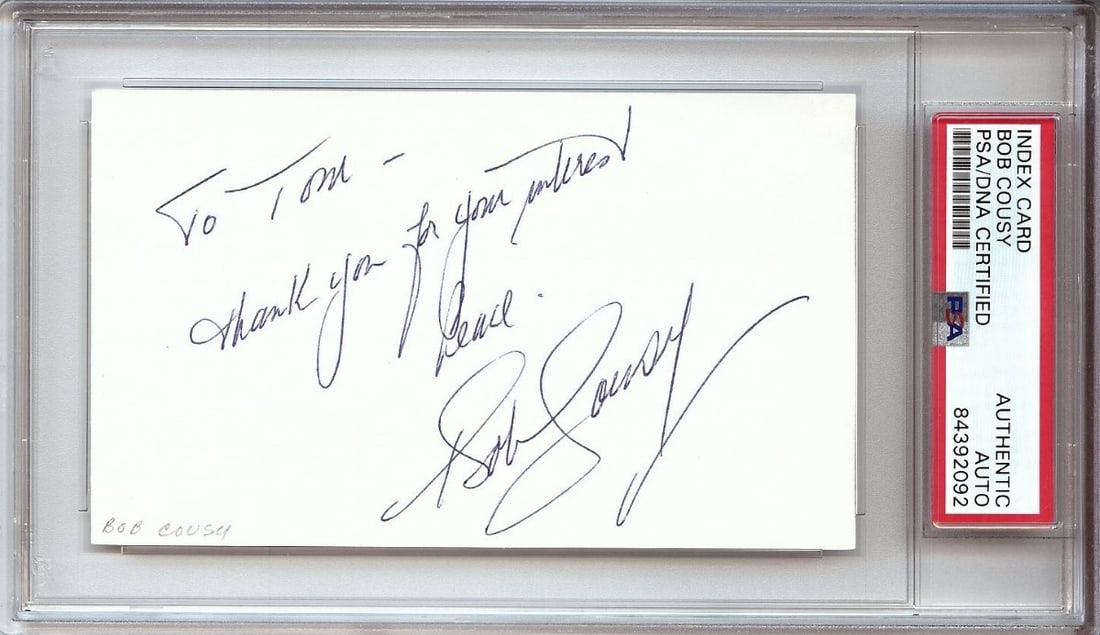 To Tom -
thank you for your interest
Peace
Bob Cousy
BOB COUSY
INDEX CARD
BOB COUSY
PSA/DNA CERTIFIED
PSA
AUTHENTIC
AUTO
84392092